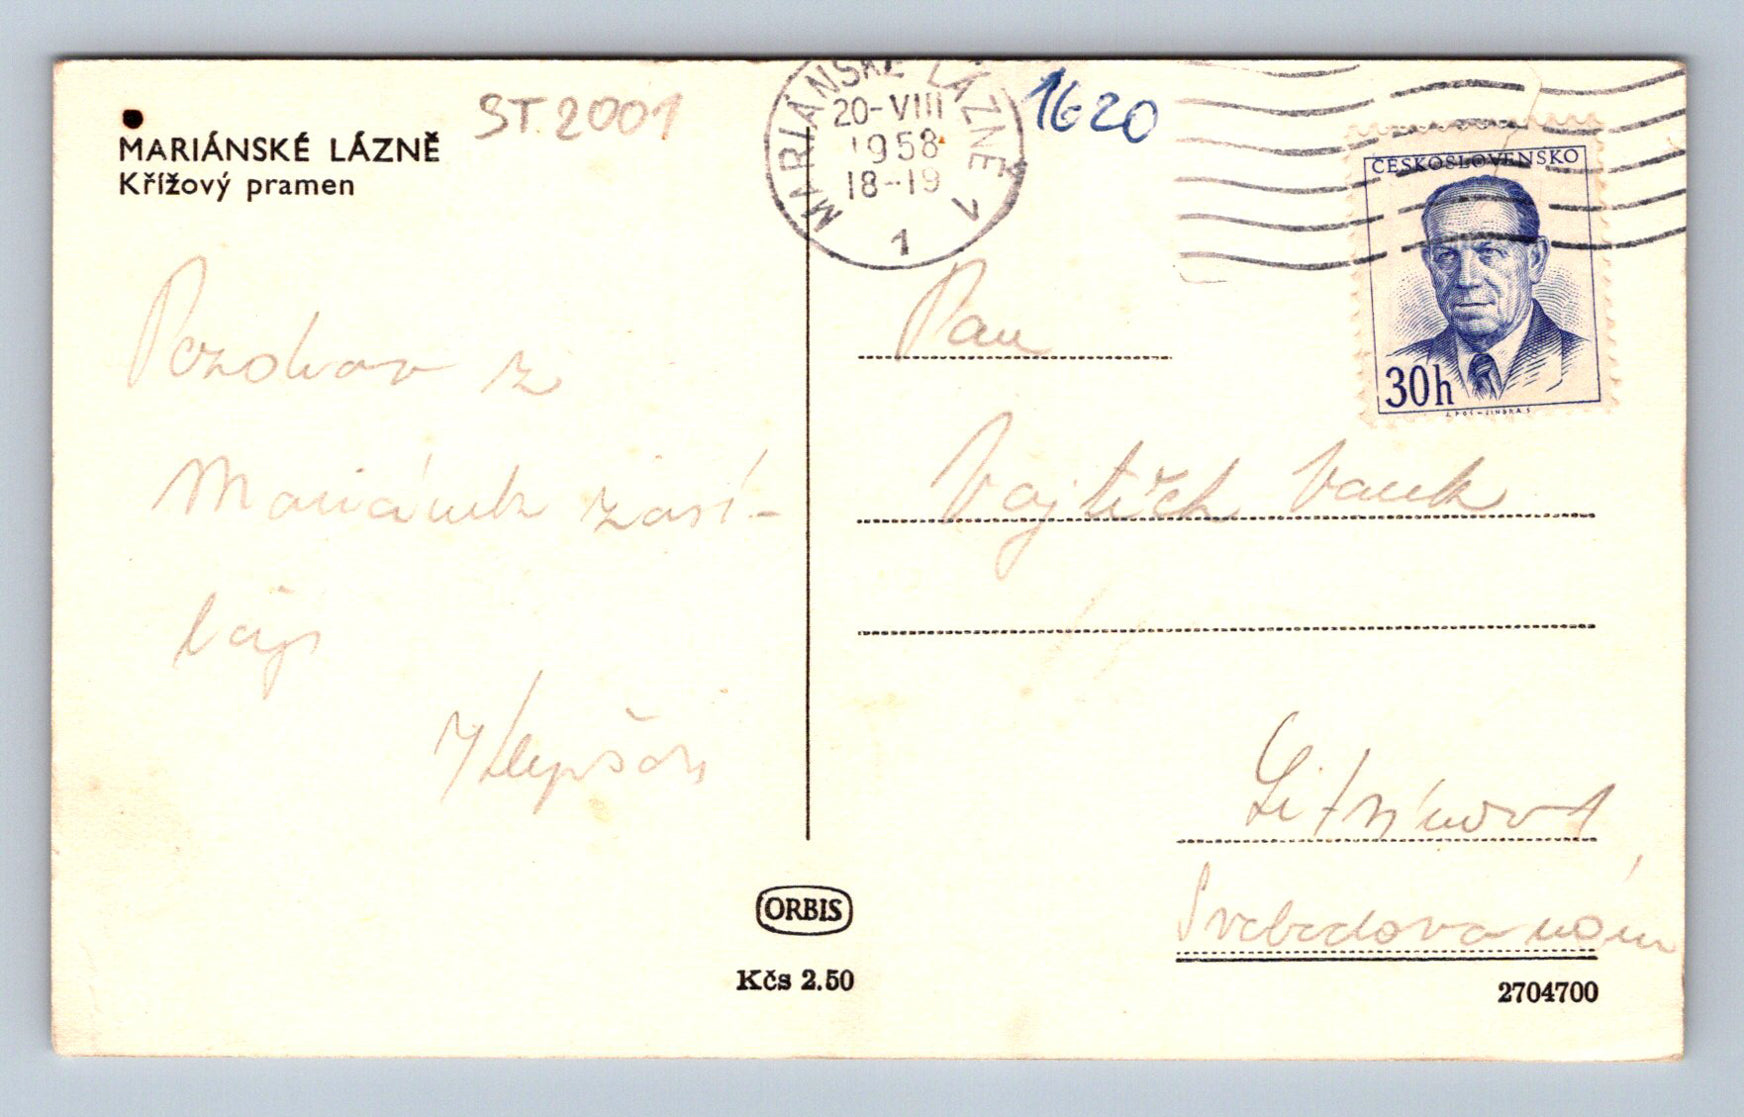 MARIÁNSKÉ LÁZNĚ
Křížový pramen
ST 2001
MARIÁNSKÉ LÁZNĚ 1
20-VIII
1958
18-19
1
1620
ČESKOSLOVENSKO
30h
Pozdrav z
Mariánek zasí-
lají
Pan
Vojtěch Vaněk
Litvínov I
Svobodova nám
ORBIS
Kčs 2.50
2704700